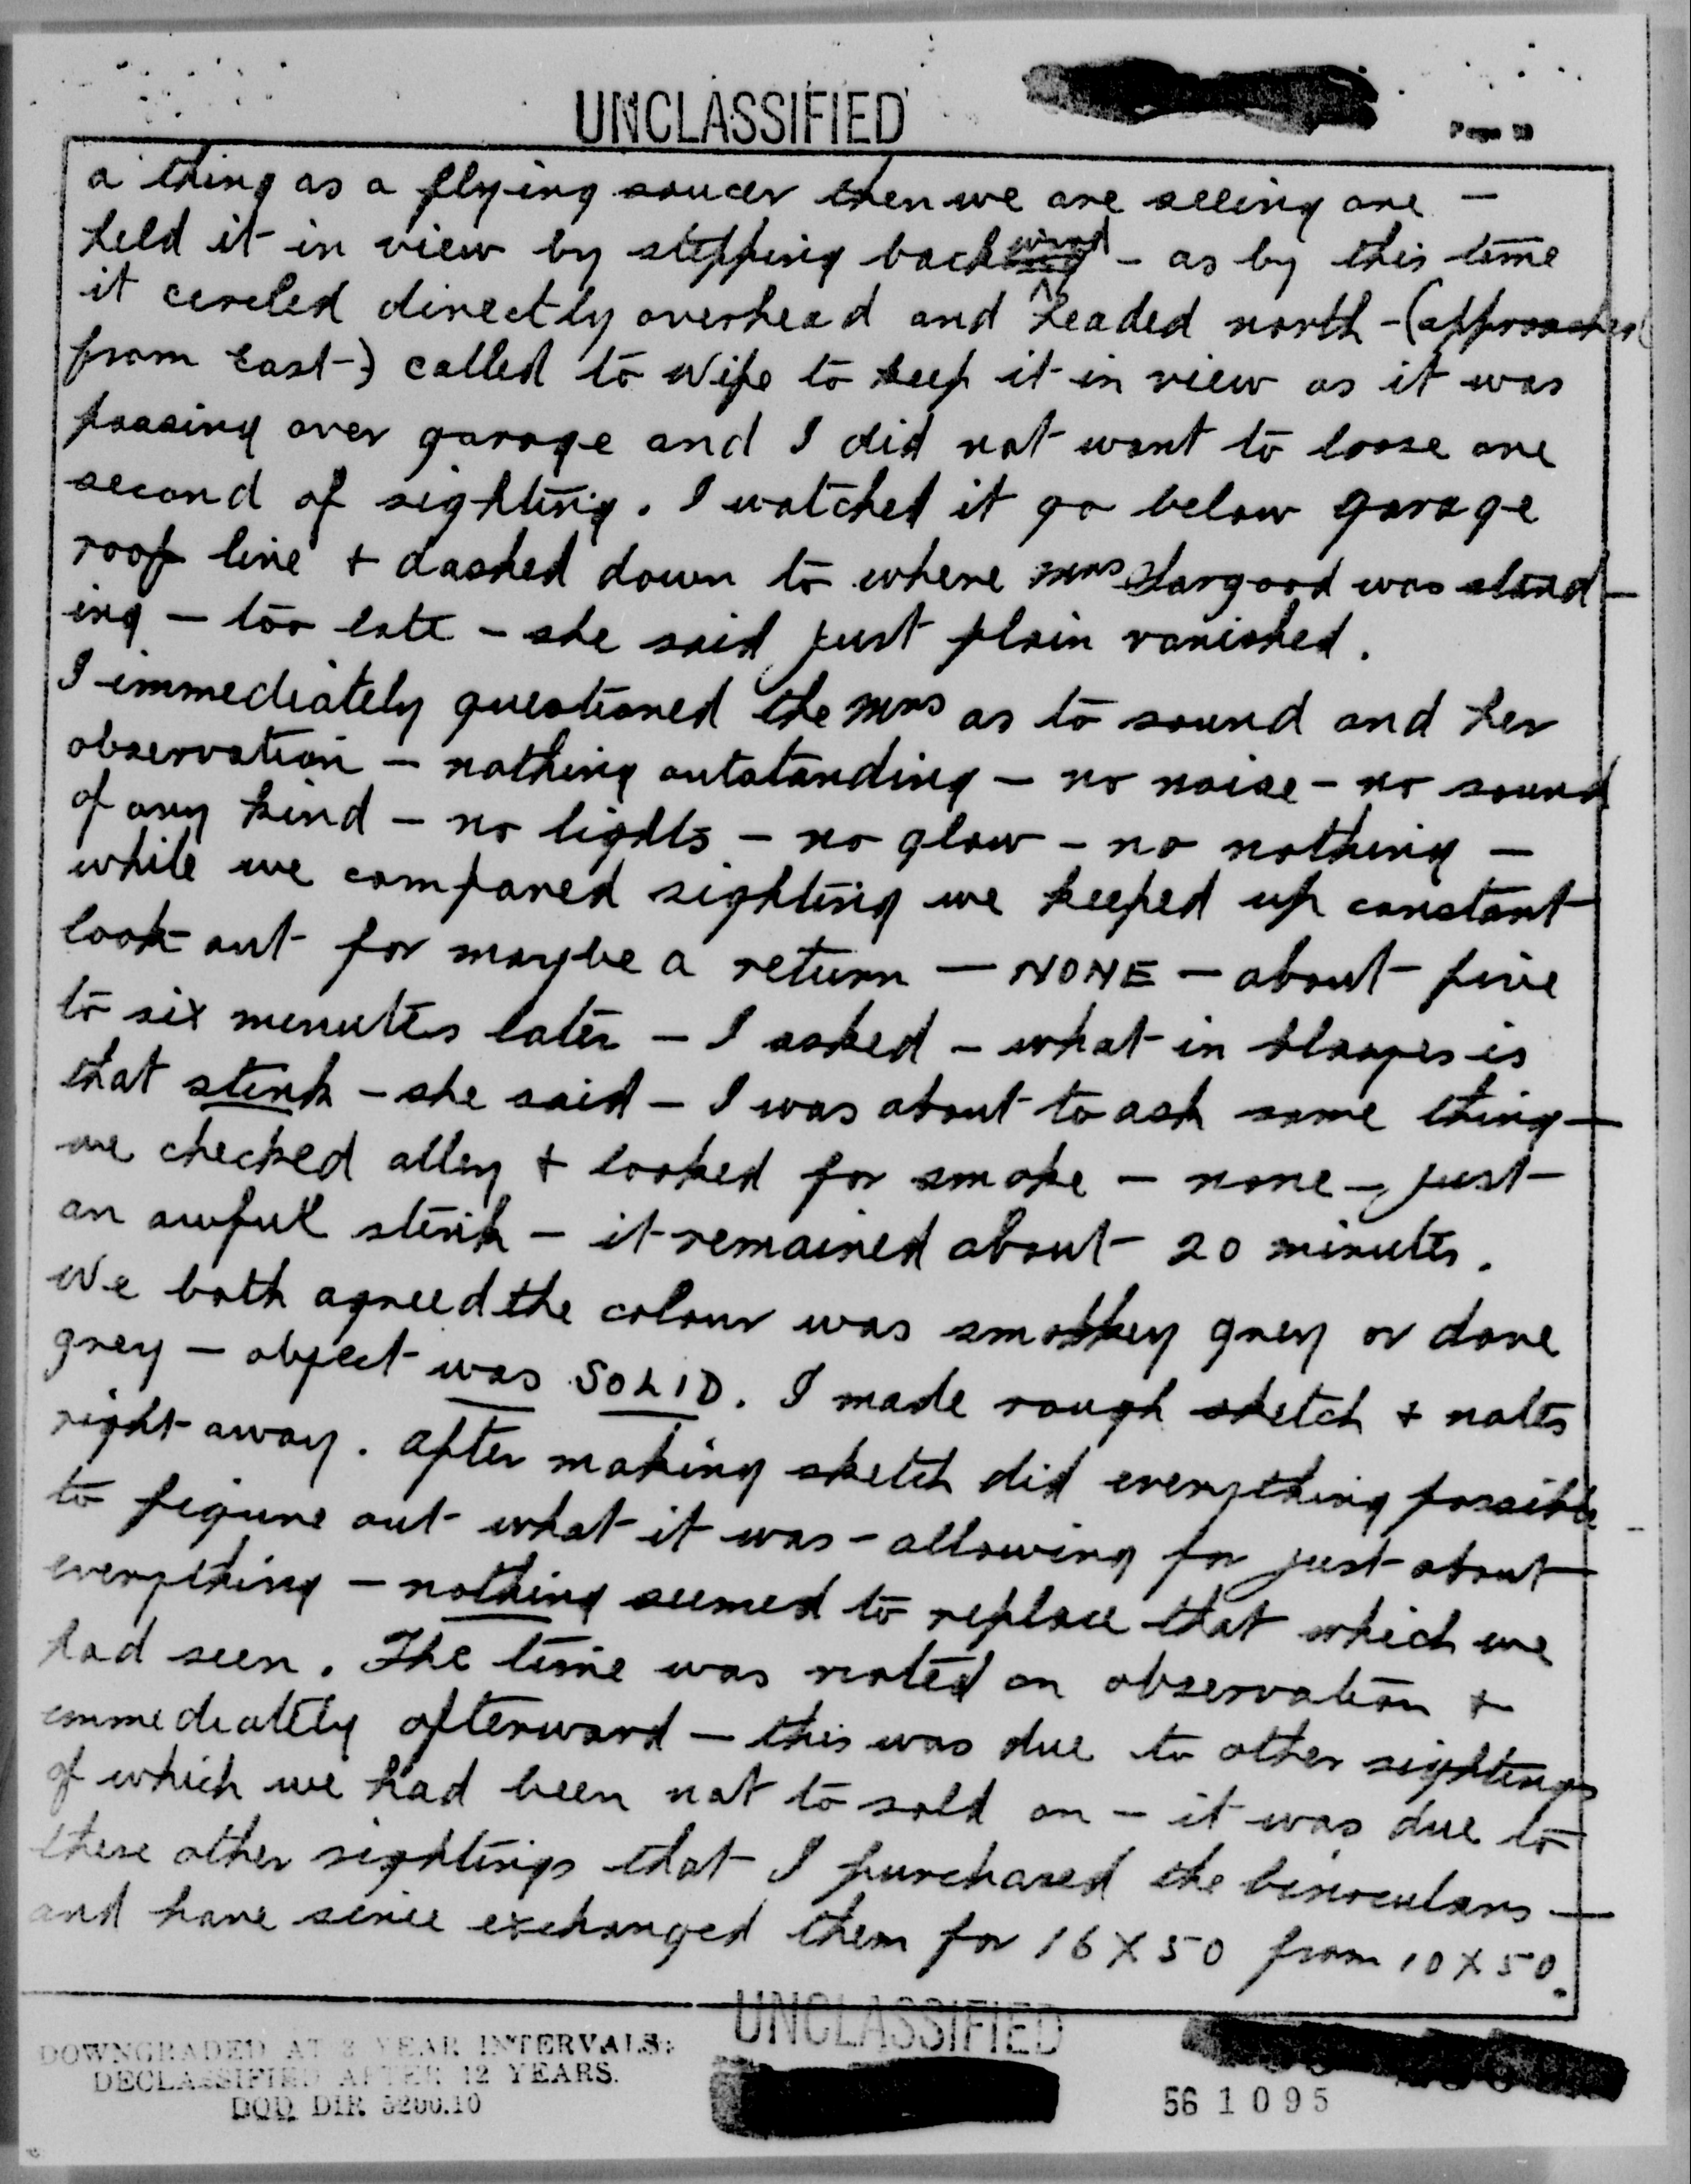 UNCLASSIFIED
Page
a thing as a flying saucer then we are seeing one —
held it in view by stepping backward - as by this time
it circled directly overhead and headed north - (approached
from East-) called to Wife to keep it in view as it was
passing over garage and I did not want to loose one
second of sighting. I watched it go below garage
roof line + dashed down to where Mrs was stand-
ing — too late - she said just plain vanished.
I immediately questioned the Mrs as to sound and her
observation — nothing outstanding — no noise - no sound
of any kind — no lights — no glow - no nothing —
while we compared sighting we keeped up constant
look out for maybe a return — NONE — about five
to six minutes later — I asked - what in blazes is
that stink - she said — I was about to ask same thing —
we checked alley + looked for smoke — none — just
an awful stink — it remained about 20 minutes.
We both agreed the colour was smokey grey or dove
grey — object was SOLID. I made rough sketch + notes
right away. After making sketch did everything possible
to figure out what it was - allowing for just about
everything — nothing seemed to replace that which we
had seen. The time was noted on observation +
immediately afterward — this was due to other sightings
of which we had been not to sold on — it was due to
these other sightings that I purchased the binoculars —
and have since exchanged them for 16 X 50 from 10 X 50.
UNCLASSIFIED
DOWNGRADED AT 3 YEAR INTERVALS;
DECLASSIFIED AFTER 12 YEARS.
DOD DIR 5200.10
56 1095